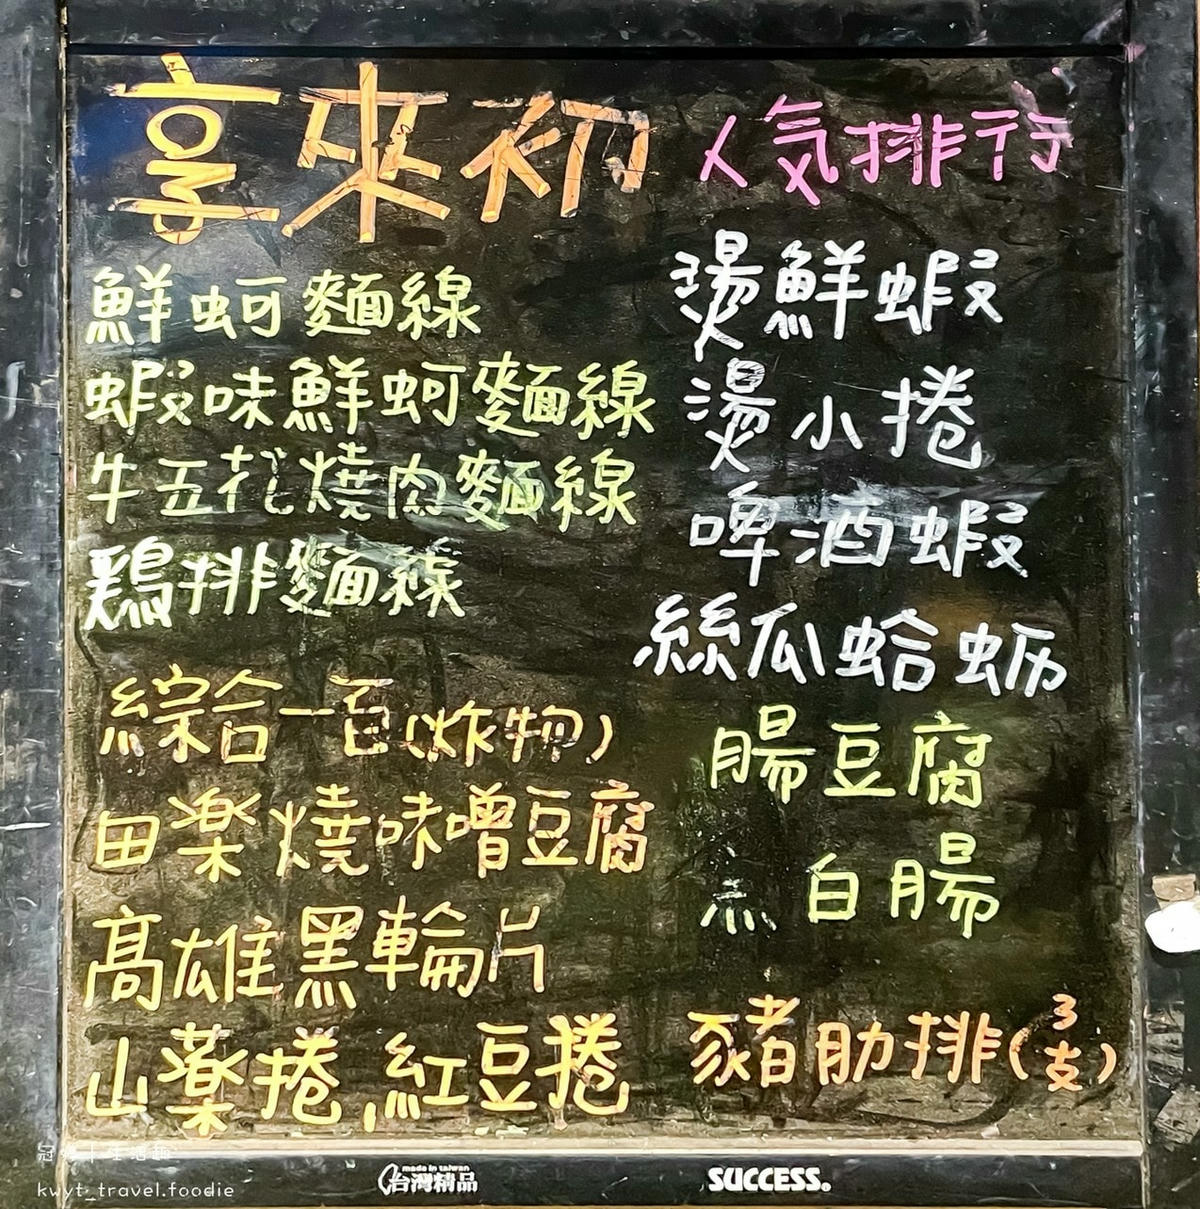 享來初
人気排行
鮮蚵麵線
蝦味鮮蚵麵線
牛五花燒肉麵線
鶏排麵線
綜合一百(炸物)
田楽燒味噌豆腐
髙雄黑輪片
山薬捲,紅豆捲
燙鮮蝦
燙小捲
啤酒蝦
絲瓜蛤蛎
腸豆腐
白腸
豬肋排(3支)
made in taiwan
台灣精品
SUCCESS®
kwyt_travel.foodie